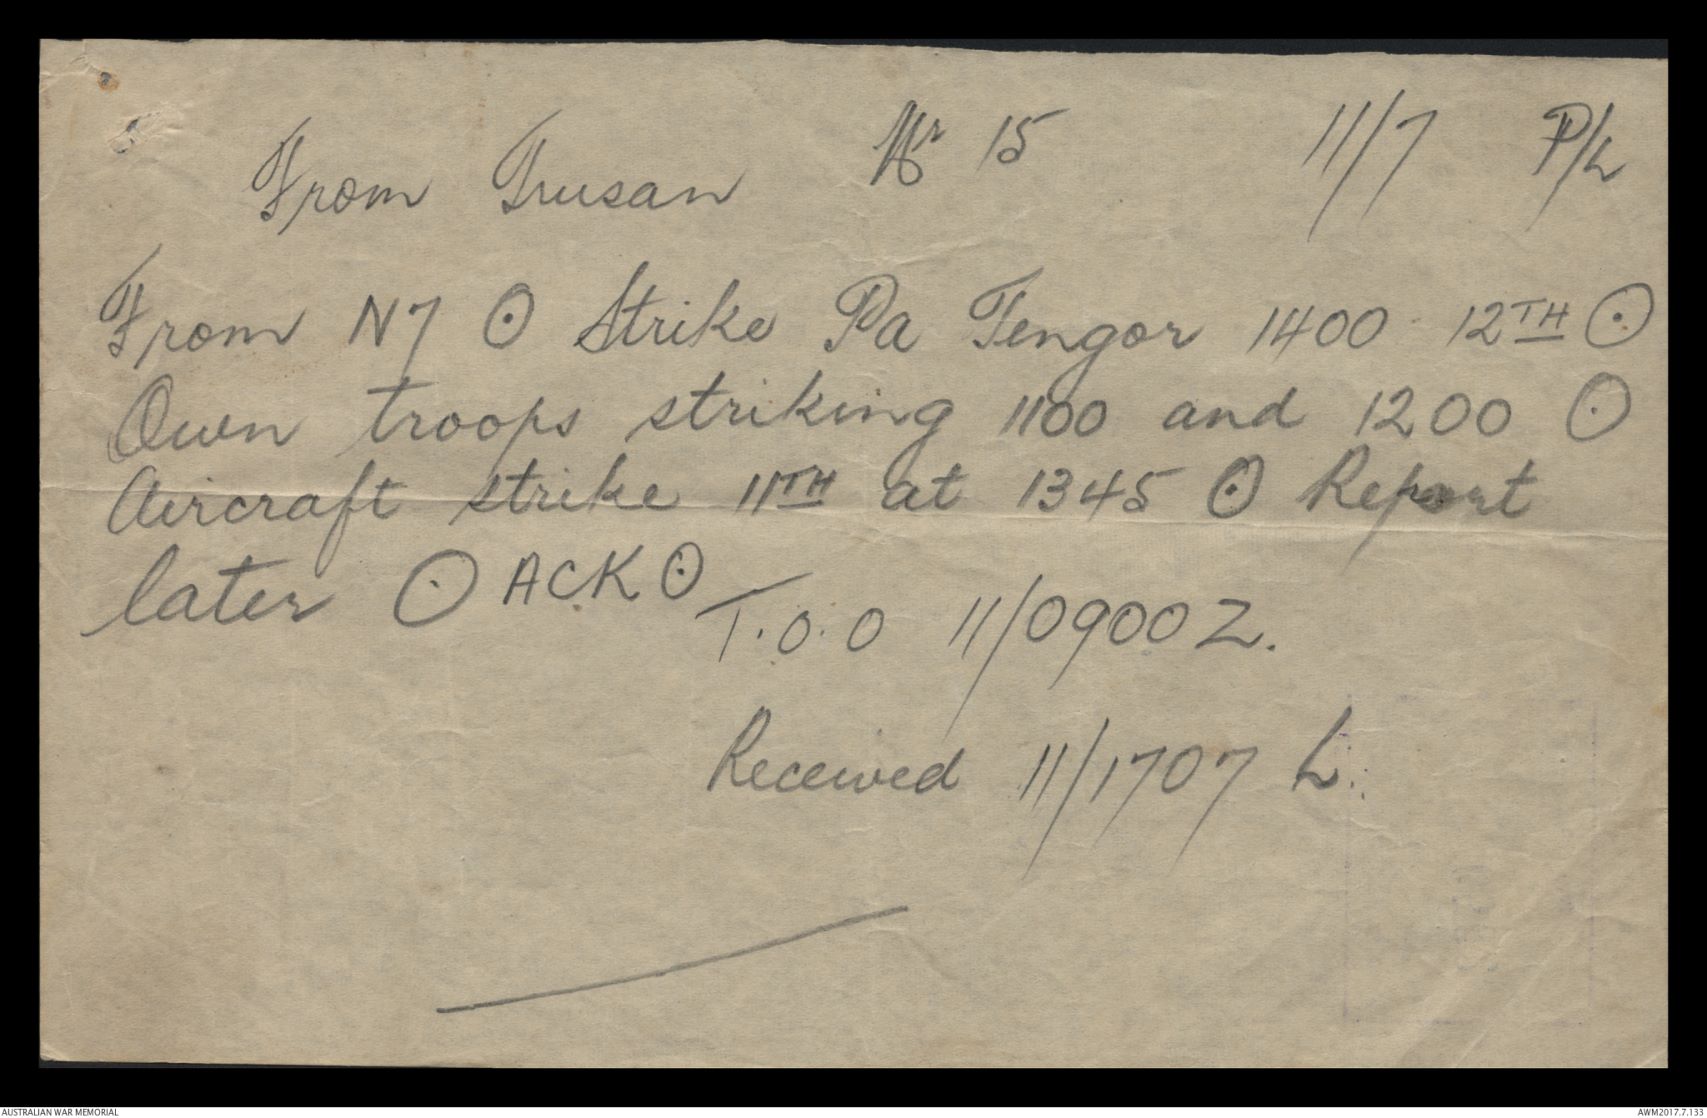 From Trusan Nr 15 11/7 P/L
From N7 ⊙ Strike Pa Tengor 1400 12TH ⊙
Own troops striking 1100 and 1200 ⊙
Aircraft strike 11TH at 1345 ⊙ Report
later ⊙ ACK ⊙
T.O.O 11/0900Z.
Received 11/1707 L.
AUSTRALIAN WAR MEMORIAL AWM2017.7.133